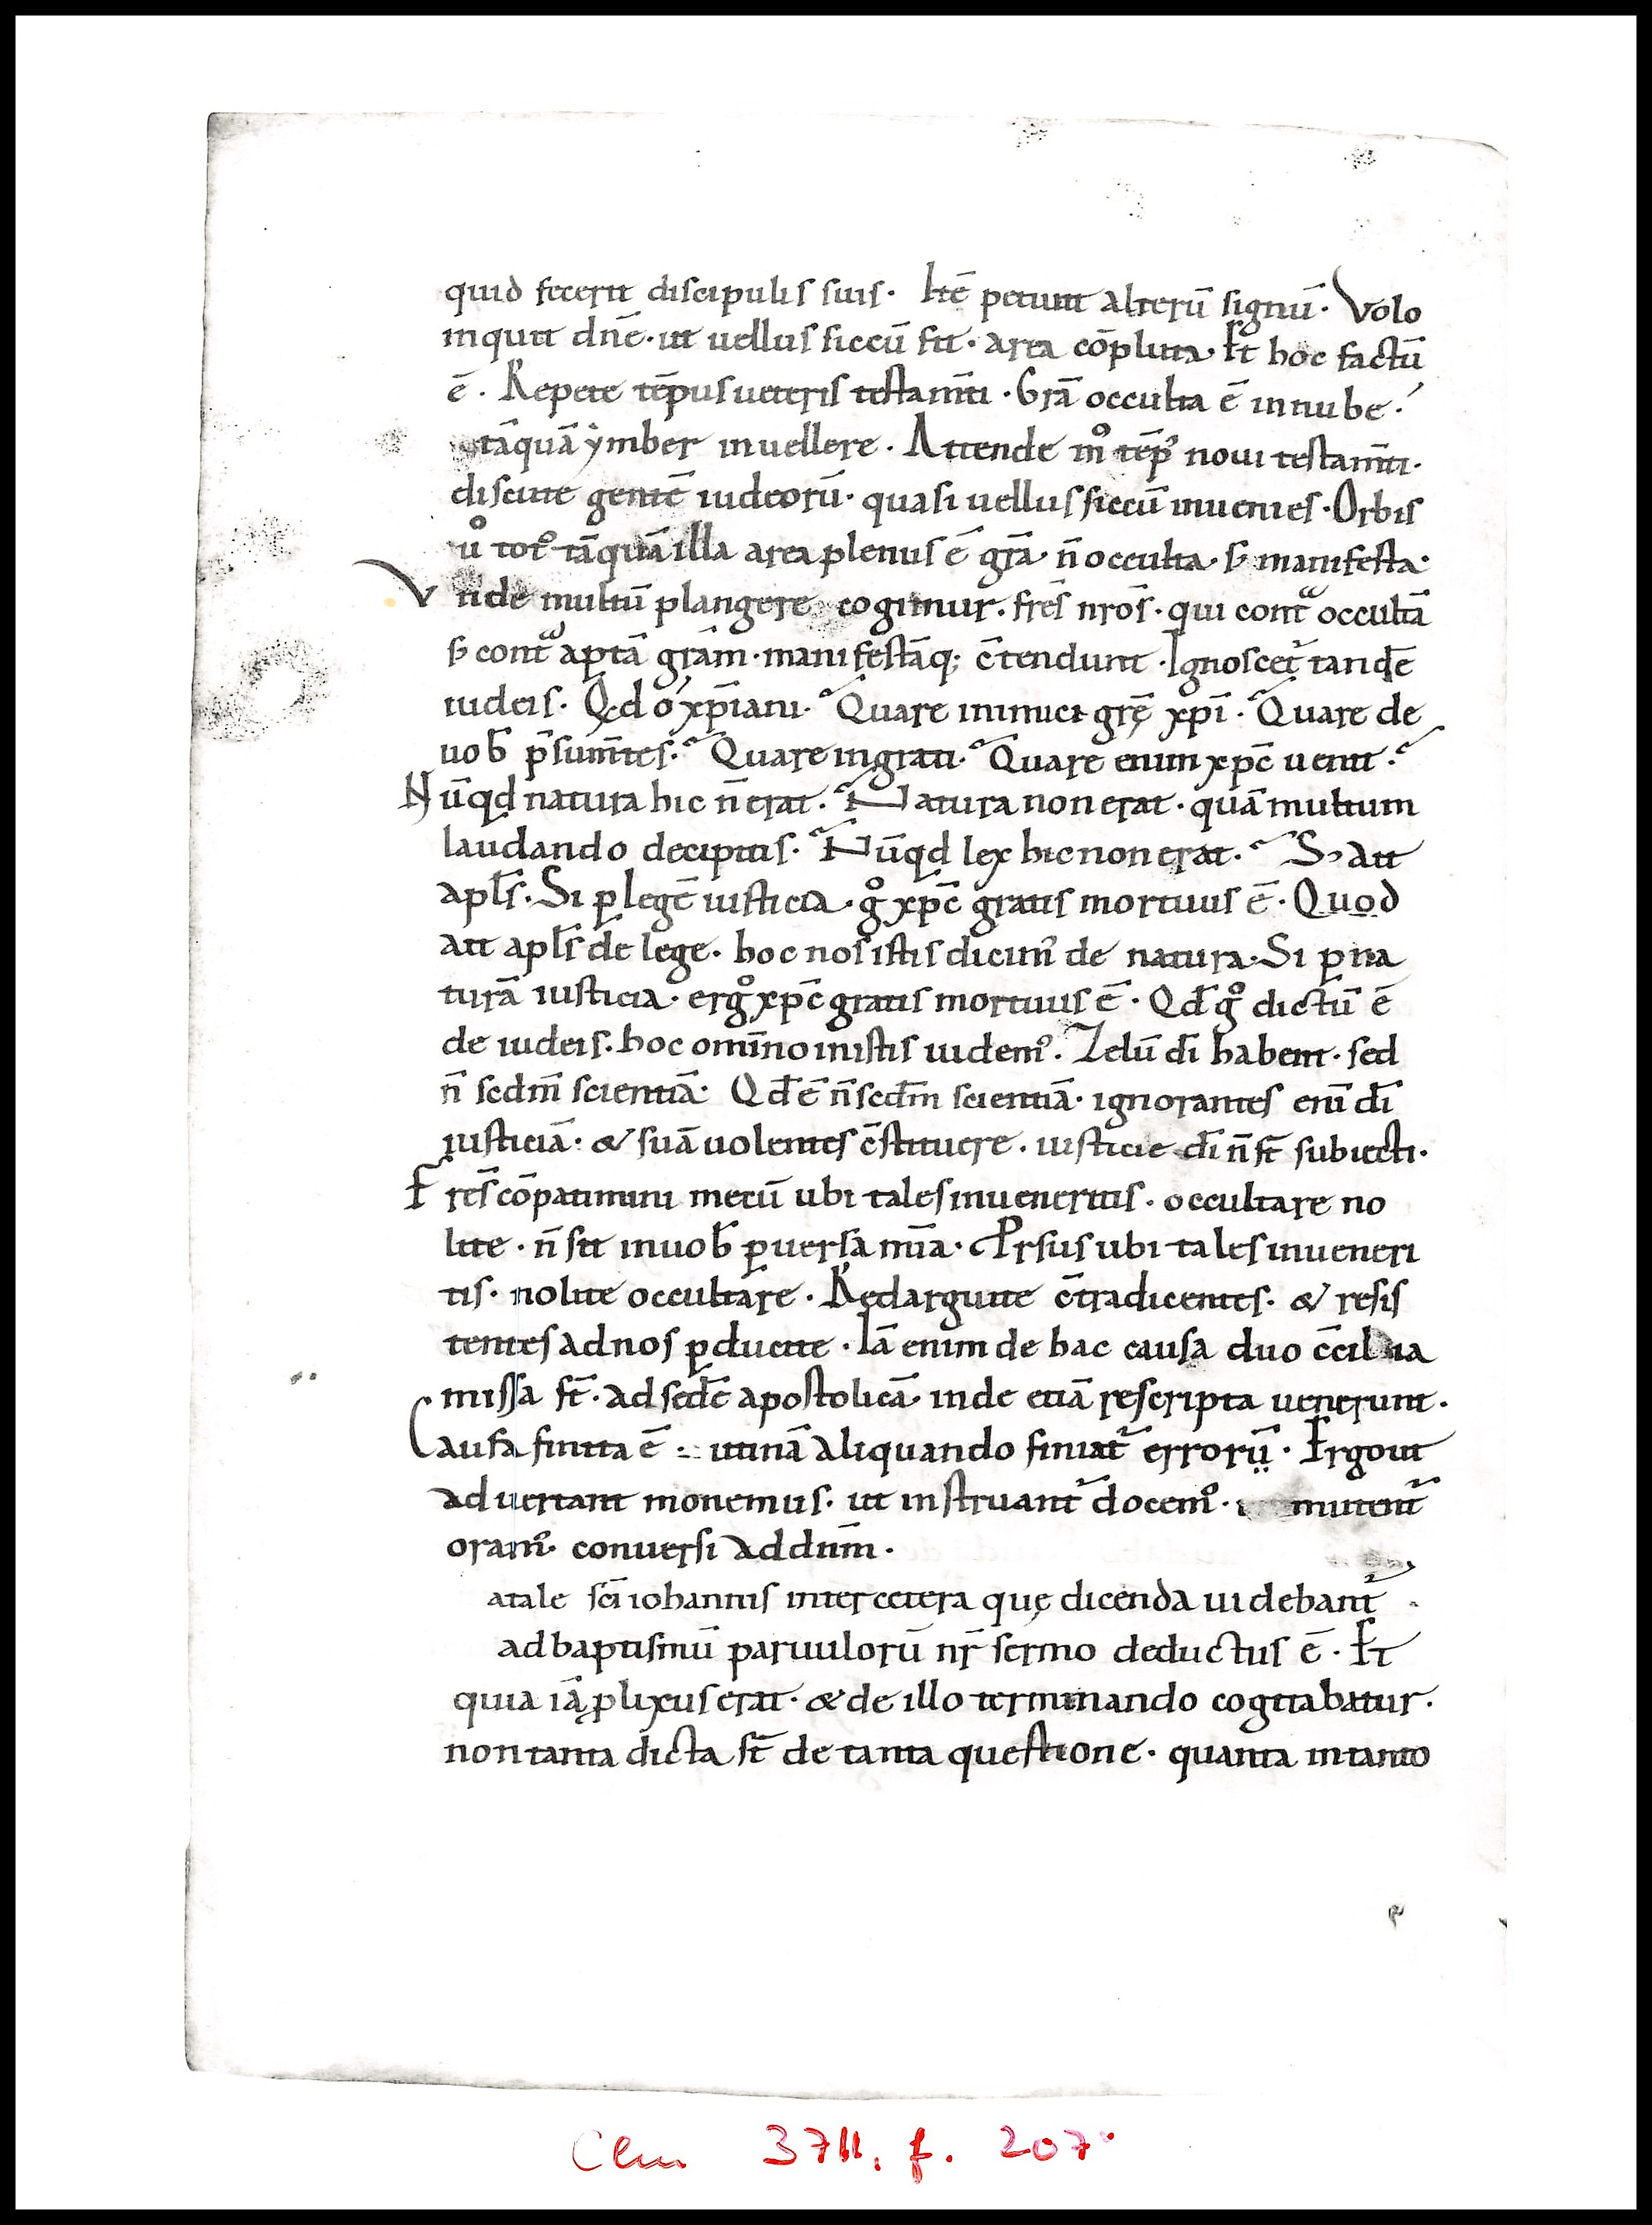 quid fecerit discipulis suis. Ité petiuit alterū signū. Volo
inquit dn̄e. ut uellus siccū sit. area cōpluta. Et hoc factū
ē. Repete tēpus ueteris testam̄ti. Grā occulta ē in nube.
tāquā ẏmber in uellere. Attende m̊ tēp' noui testam̄ti.
discute gentē iudeorū. quasi uellus siccū inuenies. Orbis
ů tot' tāquā illa area plenus ē grā. n̄ occulta. s; manifesta.
Vnde multū plangere cogimur. frēs nrōs. qui contᵃ occultā
s; contᵃ aptā grām. manifestāq; c̄tendunt. Ignoscet᷑ tandē
iudeis. Qd ó xp̄iani. Quare inimici grę̄ xp̄i. Quare de
uob̄ p̄sum̄tes. Quare ingrati. Quare enim xp̄c uenit.
Nūqd natura hic n̄ erat. Natura non erat. quā multum
laudando decipitis. Nūqd lex hic non erat. S; ait
apl̄s. Si ꝑ legē iusticia. g̊ xp̄c gratis mortuus ē. Quod
ait apl̄s de lege. hoc nos istis dicim' de natura. Si ꝑ na
turā iusticia. erg̊ xp̄c gratis mortuus ē. Qd̄ g̊ dictū ē
de iudeis. hoc omīno in istis uidem'. Zelū dī habent. sed
n̄ scdm̄ scientiā. Qd̄ ē n̄ scdm̄ scientiā. ignorantes enī dī
iusticiā. & suā uolentes c̄stituere. iusticie dī n̄ st̄ subiecti.
Fres̄ cōpatimini mecū ubi tales inueneritis. occultare no
lite. n̄ sit in uob̄ ꝑuersa mīa. Prsus ubi tales inueneri
tis. nolite occultare. Redarguite c̄tradicentes. & resis
tentes ad nos ꝑducite. Iā enim de hac causa duo c̄cilia
missa st̄. ad sedē apostolicā. inde etiā rescripta uenerunt.
Causa finita ē. utinā aliquando finiat᷑ errorụ̄. Ergo ut
aduertant monemus. ut instruant᷑ docem'. mutent᷑
oram'. conuersi ad dnm̄.
atale sc̄i iohannis inter cetera quę dicenda uidebant᷑
ad baptismū paruulorū nr̄ sermo deductus ē. Et
quia iā ꝓlixus erat. & de illo terminando cogitabatur.
non tanta dicta st̄ de tanta questione. quanta in tanto
Clm 3711. f. 207